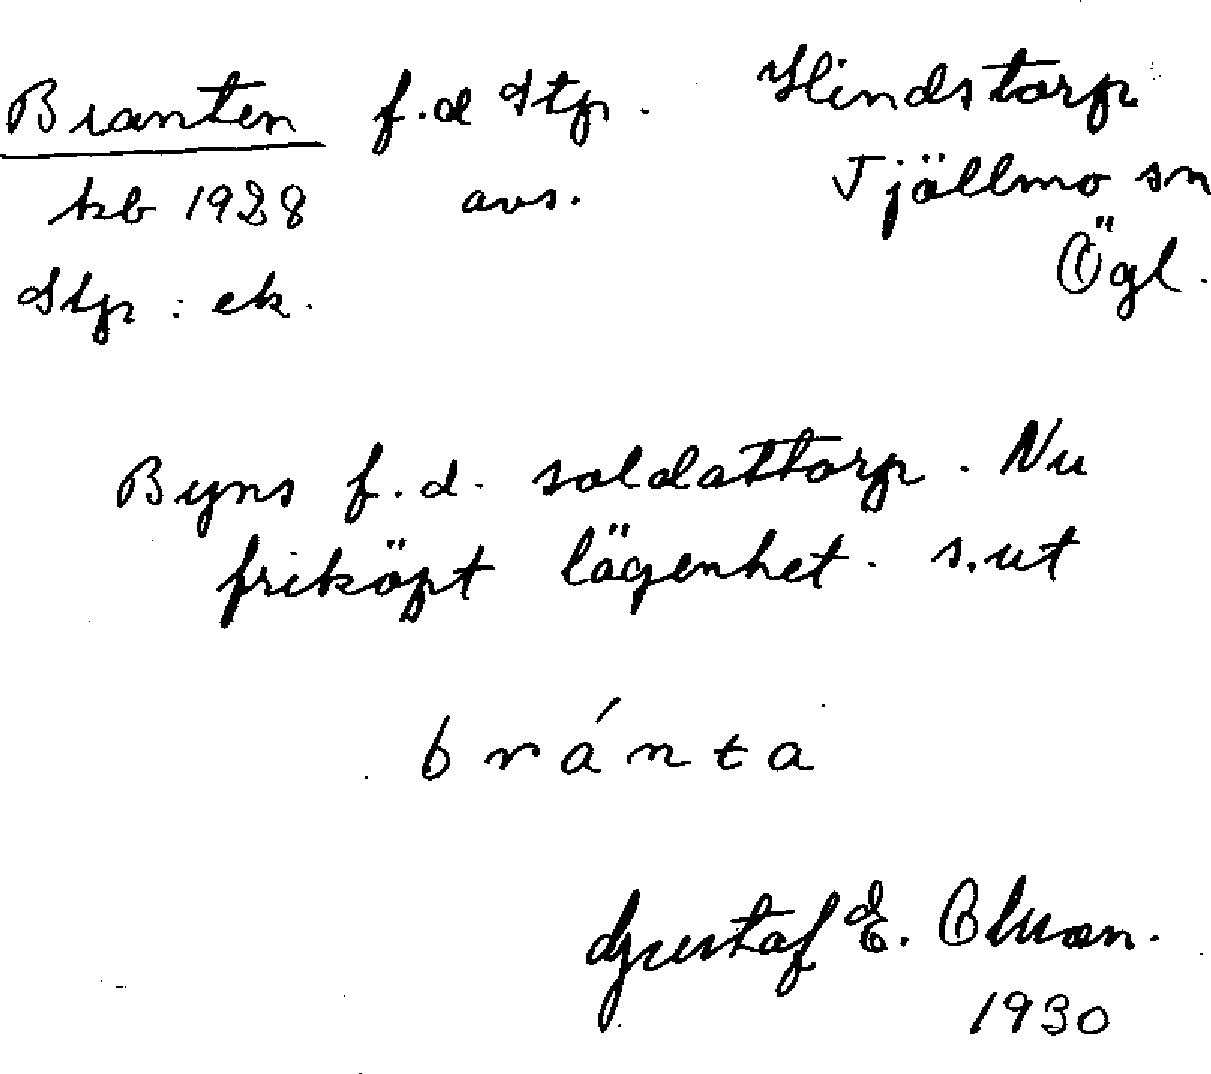 Branten f.d Stp. Hindstorp
kb 1928 avs. Tjällmo sn
Stp : ek. Ögl.
Byns f.d. soldattorp. Nu
friköpt lägenhet. s.ut
bránta
Gustaf E.
1930